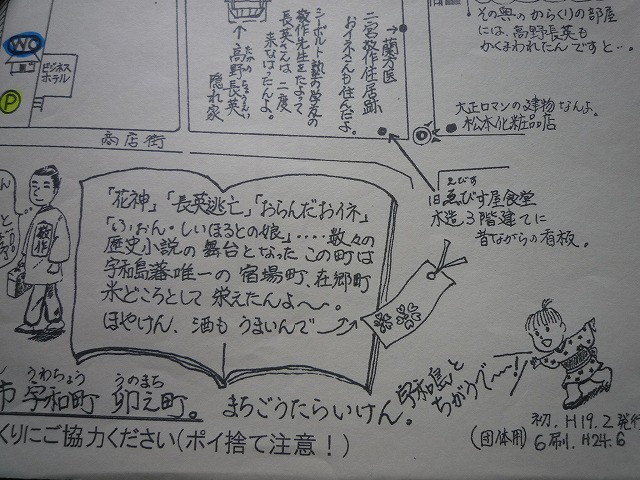 その奥のからくりの部屋
には、高野長英も
かくまわれたんですと…。
大正ロマンの建物なんよ。
松本化粧品店
→蘭方医
二宮敬作住居跡
おイネさんも住んだよ。
シーボルト塾の学友の
敬作先生をたよって
長英さんは、二度
来なはったんよ。
→高野長英
たかのちょうえい
隠れ家
WC
ビジネス
ホテル
P
商店街
えびす
旧ゑびす屋食堂
木造3階建てに
昔ながらの看板。
敬作
「花神」「長英逃亡」「おらんだおイネ」
「ふぉん・しいほるとの娘」‥‥数々の
歴史小説の舞台となったこの町は
宇和島藩唯一の宿場町、在郷町
米どころとして栄えたんよ〜。
ほやけん、酒もうまいんで〜→
宇和島と
ちがうで〜!
うわちょう うのまち
市宇和町卯之町。まちごうたらいけん。
くりにご協力ください(ポイ捨て注意!)
(団体用)
初.H19.2発行
6刷.H24.6